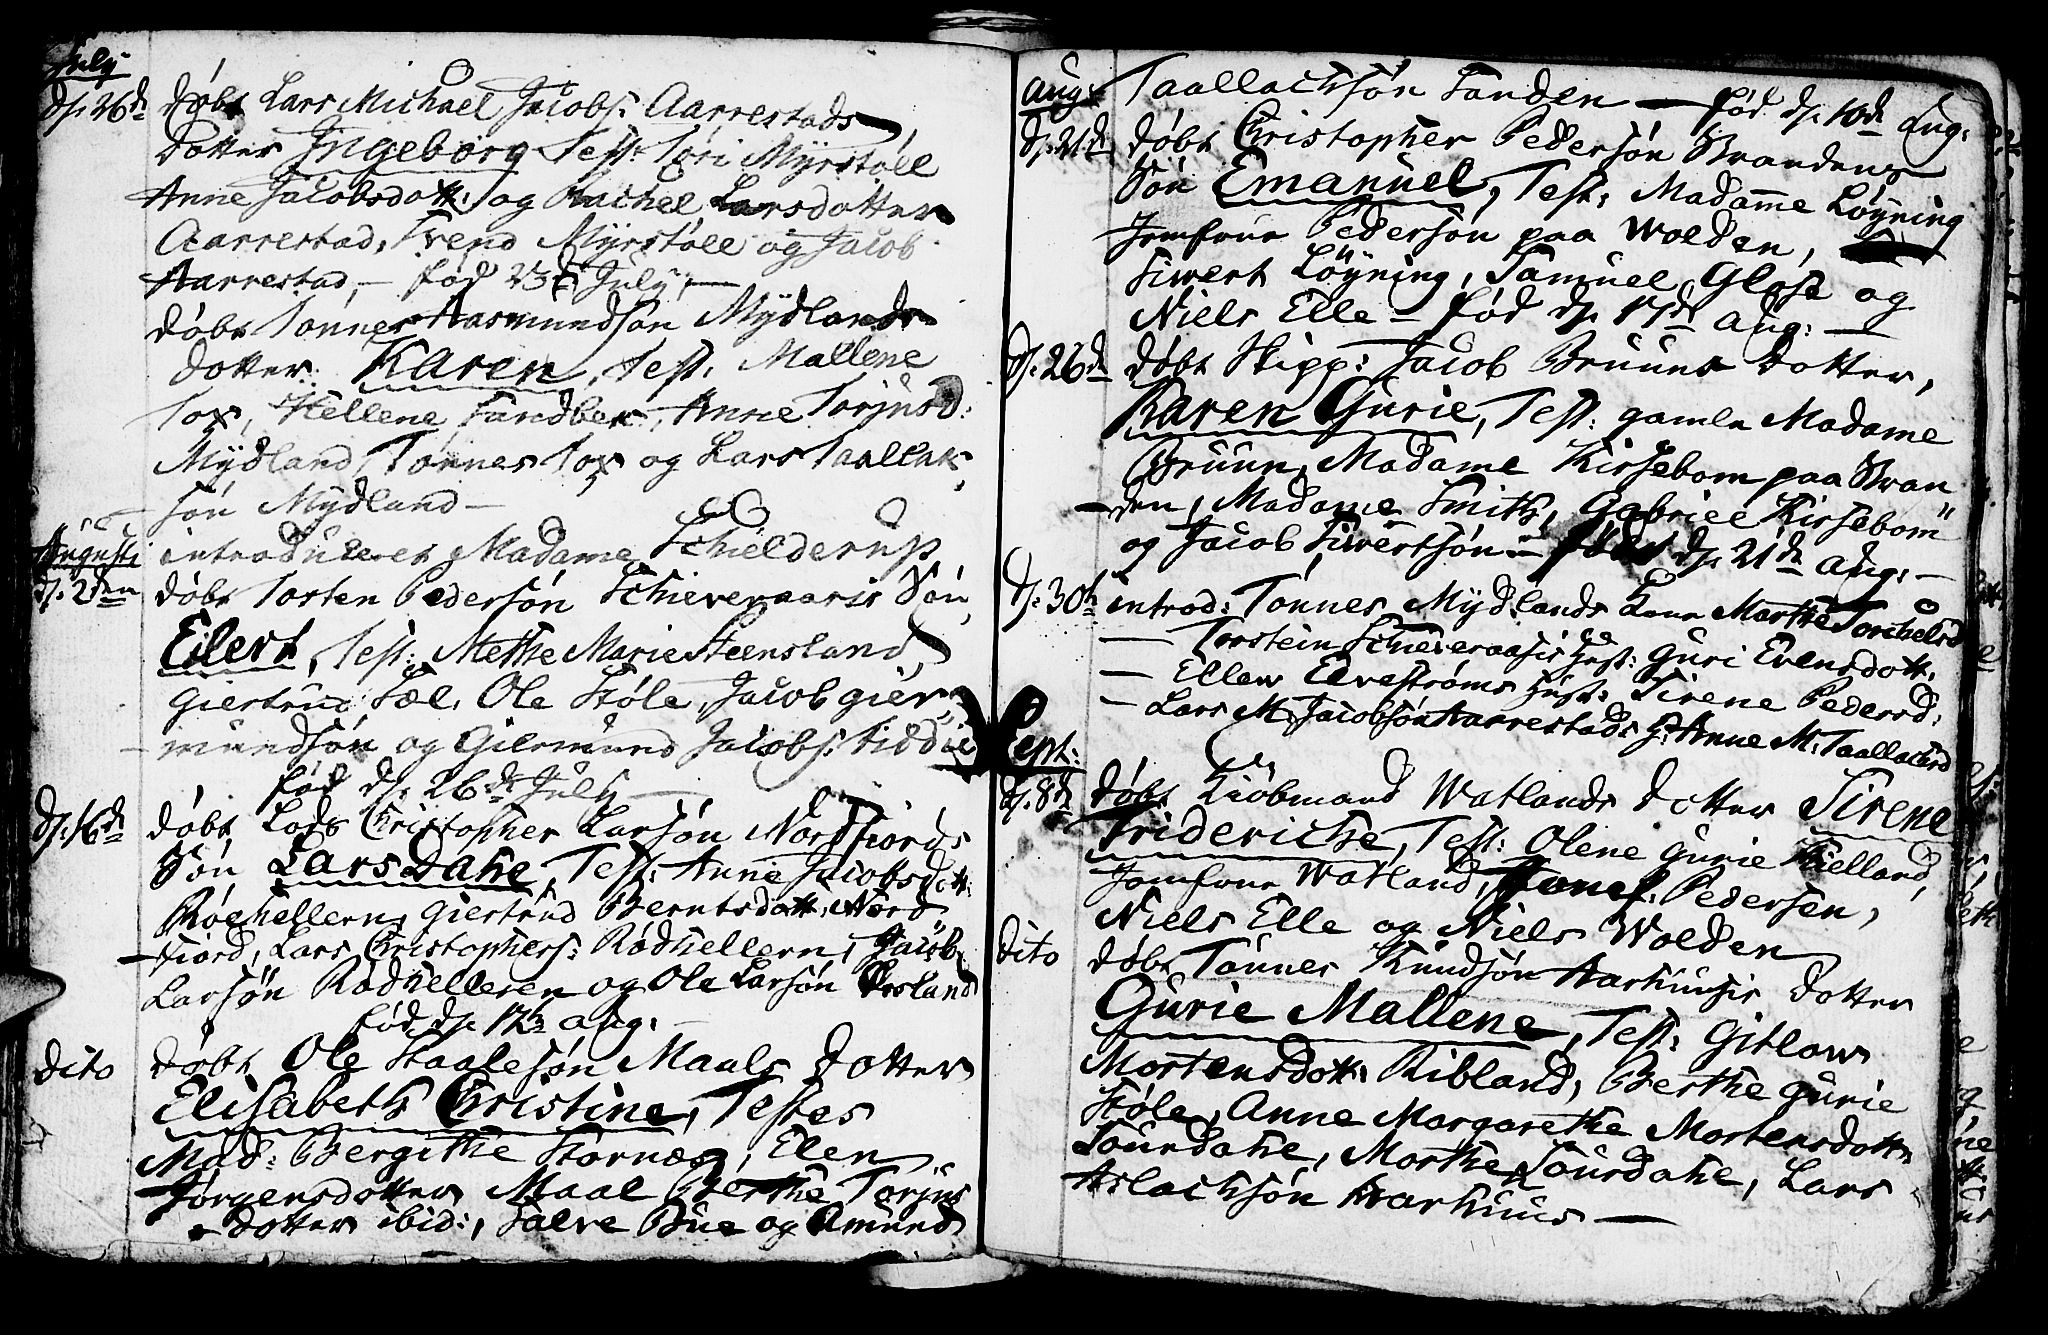 July
d. 26d døbt Lars Michael Jacobs: Aarrestads
dotter Ingeborg Test: Tori Myrstøll
Anne Jacobsdott: og Rachel Larsdotter
Aarrestad, Trend Myrstøll og Jacob
Aarrestad, – fød 23de July, –
døbt Tønnes Aasmundsøn Mydlands
dotter Karen, Test. Mallene
Tox, Hellene Sandbek, Anne Torjusd:
Mydland, Tønnes Tox og Lars Taallak
søn Mydland –
Augusti introduceret Madame Schielderup
d. 2den døbt Tosten Pedersøn Schieveraasis Søn
Eilert, Test: Methe Marie Steensland,
Giertrud Sæl, Ole Støle, Jacob Gier
mundsøn og Giermund Jacobs: Liddie
fød d. 26de July –
d. 16de døbt Lods Christopher Larsøn Nordfiords
Søn Lars Dahe, Test: Anne Jacobsdott:
Roehellern, Giertrud Berntsdott: Nord
fiord, Lars Christophers: Rødhellern, Jacob
Larsøn Rødhelleren og Ole Larsøn
fød d. 12 aug: –
dito døbt Ole Staalesøn Maals dotter
Elisabeth Christine, Testes
Mad: Bergithe Stornæs, Elen
Jørgensdotter Maal Berthe Torjus
dotter ibid:, Salve Bue og Amund
Aug: Taallachsøn Sanden – fød d. 10de Aug:
d. 21de døbt Christopher Pedersøn Brandens
Søn Emanuel, Test: Madamme Løyning
Jomfrue Pedersøn paa Wolden,
Siwert Løyning, Samuel Glose og
Niels Elle – fød d. 17de aug: –
d. 26de døbt Skipp: Jacob Bruuns dotter,
Karen Gurie, Test: gamle Madame
Bruun, Madame Kirsebom paa Bran
den, Madame Smith, Gabriel Kirsebom
og Jacob Siwertsøn – fød d. 21de aug: –
d. 30te introd: Tønnes Mydlands Kone Marthe Torchelsd
– Torstein Schieveraasis Hust: Guri Evensdott.
– Ellew Elvestrøms Hust: Sirene Pedersd:
– Lars M: Jacobsøn Aarrestads H: Anne M: Taallacksd
Sept:
d. 8de døbt Kiøbmand Watlands dotter Sirene
Frideriche, Test: Olene Gurie Kielland,
Jomfrue Watland, Pedersen,
Niels Elle og Niels Wolden
dito døbt Tønnes Knudsøn Aarhuusis dotter
Gurie Mallene, Test: Gitlow
Mortensdott: Ribland, Berthe Gurie
Støle, Anne Margarethe Mortensdott
Lourdahe, Marthe Lourdahe, Lars
Aslachsøn Aarhuus –